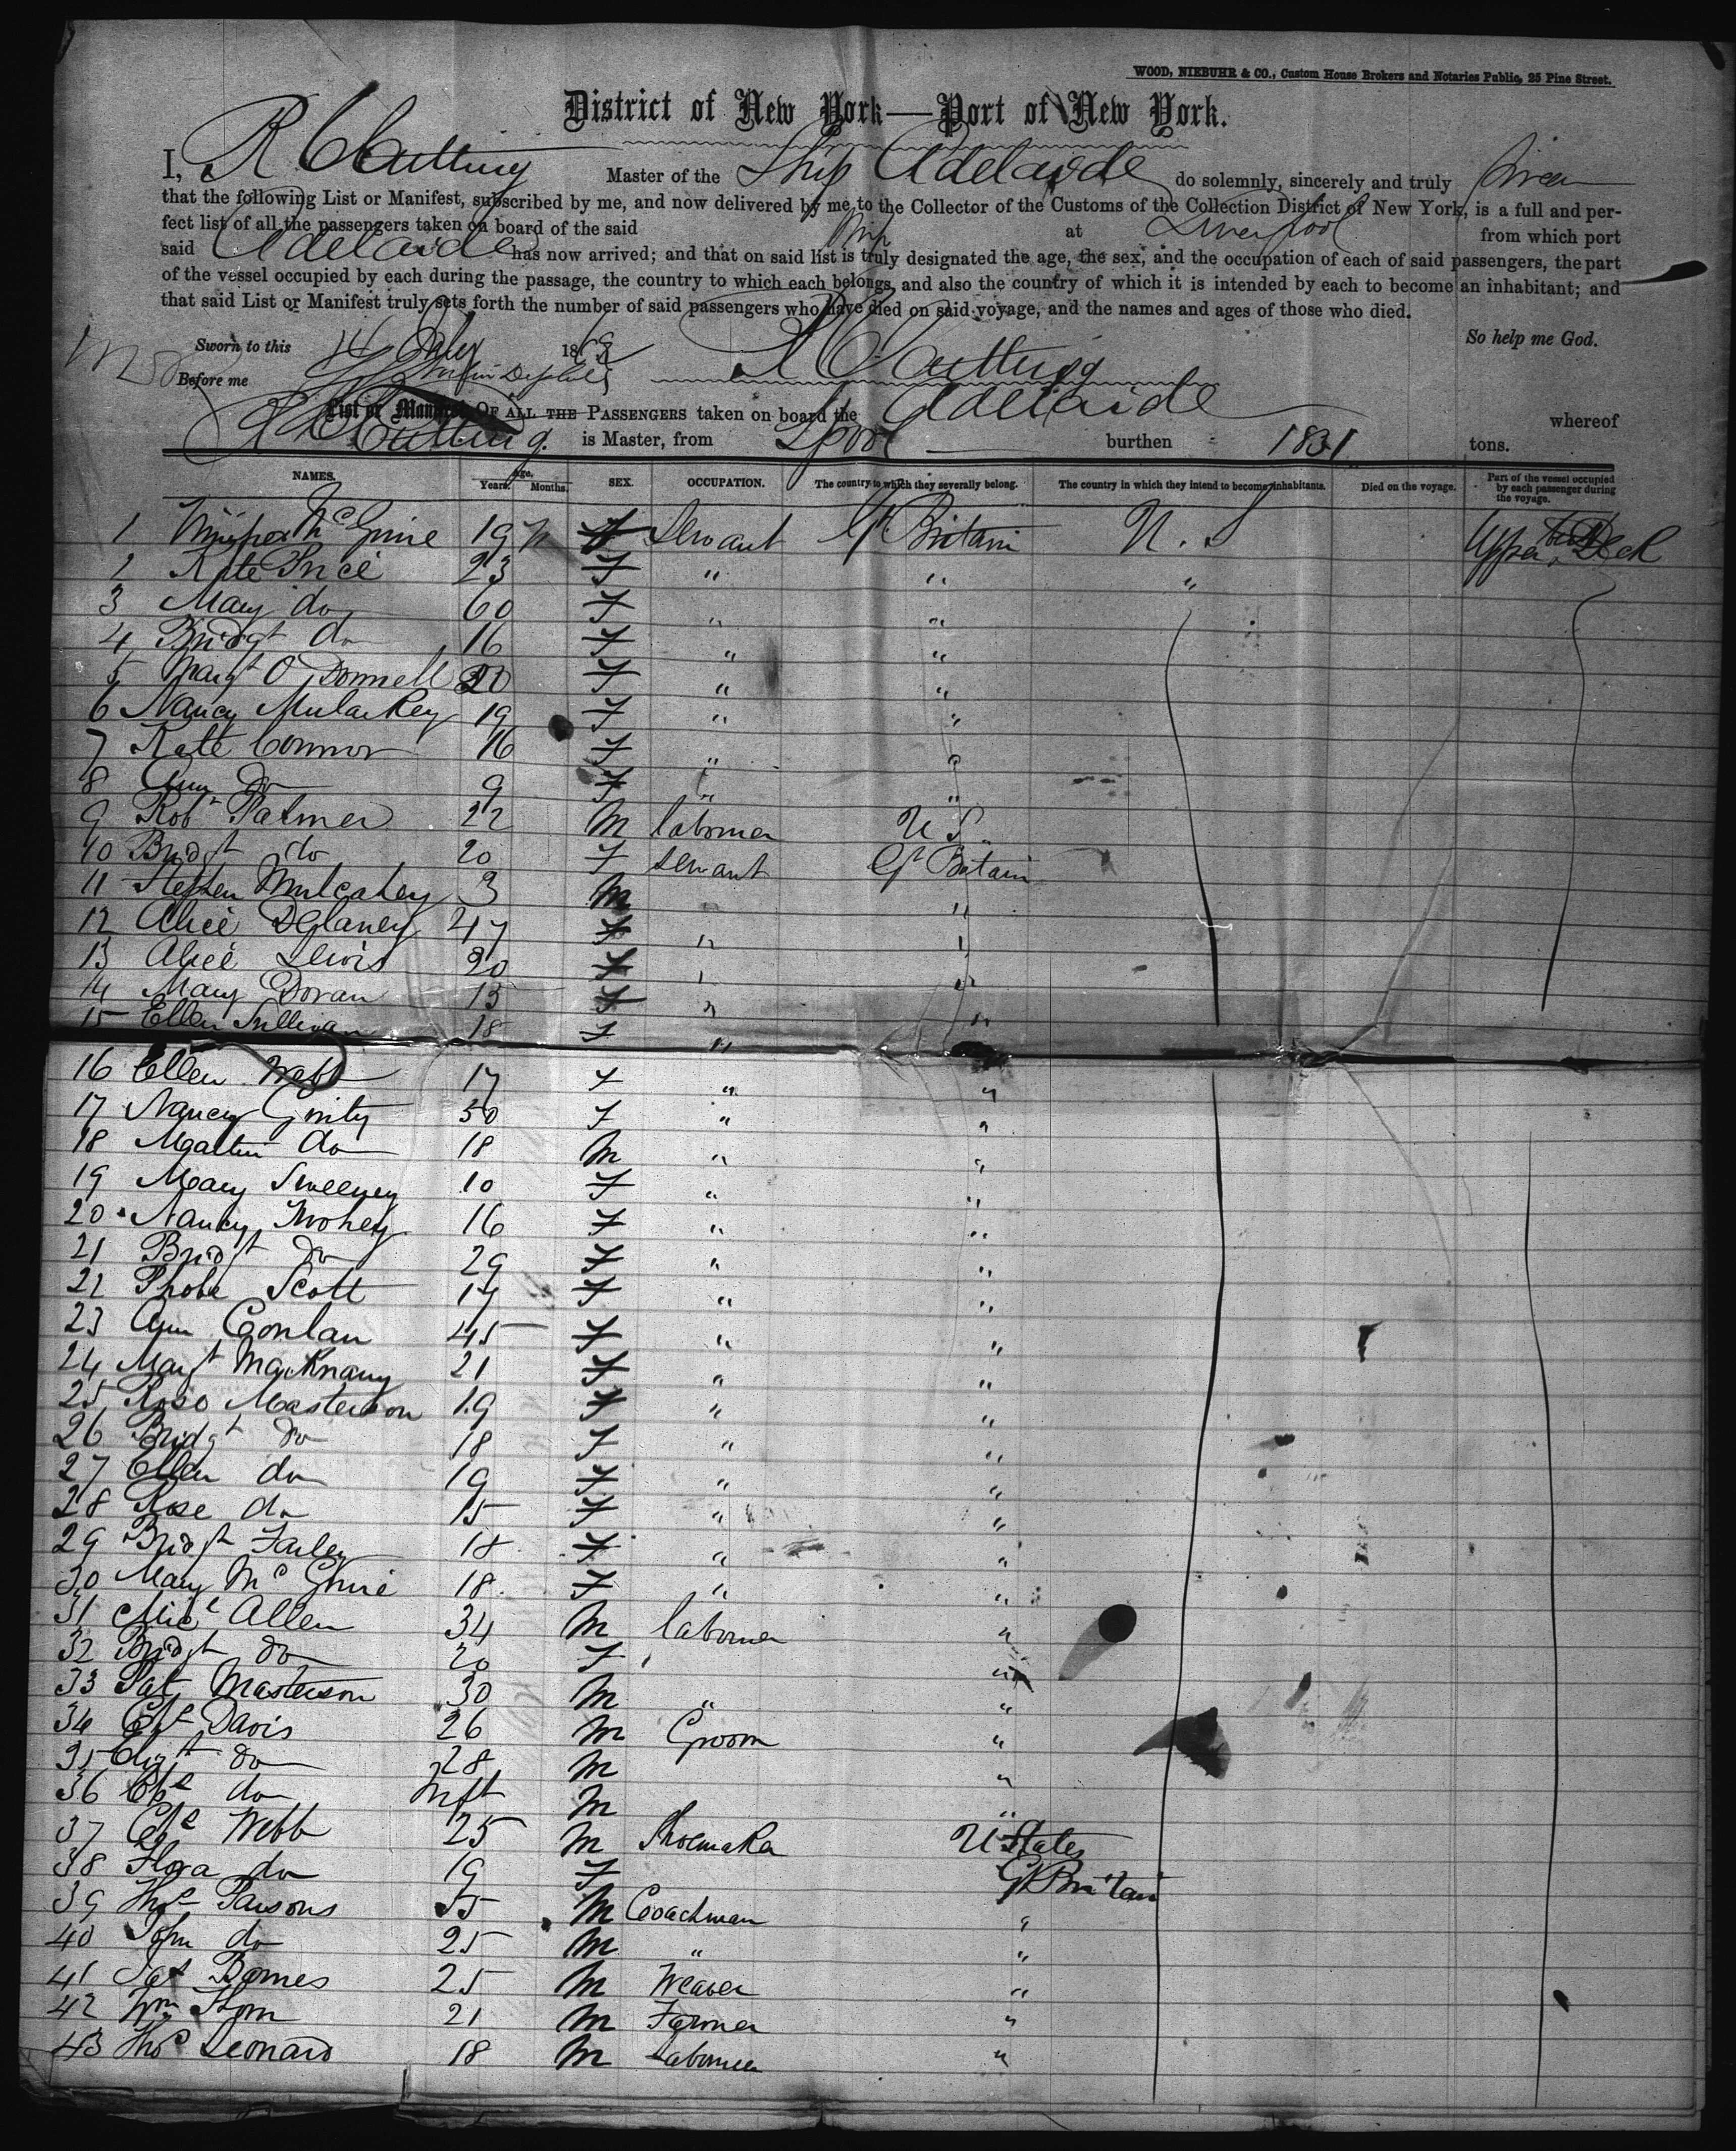 WOOD, NIEBUHR & CO., Custom House Brokers and Notaries Public, 25 Pine Street.
District of New York—Port of New York.
I, R Cutting Master of the Ship Adelaide do solemnly, sincerely and truly Swear
that the following List or Manifest, subscribed by me, and now delivered by me to the Collector of the Customs of the Collection District of New York, is a full and per-
fect list of all the passengers taken on board of the said Ship at Liverpool from which port
said Adelaide has now arrived; and that on said list is truly designated the age, the sex, and the occupation of each of said passengers, the part
of the vessel occupied by each during the passage, the country to which each belongs, and also the country of which it is intended by each to become an inhabitant; and
that said List or Manifest truly sets forth the number of said passengers who have died on said voyage, and the names and ages of those who died.
Sworn to this 14 July 186 So help me God.
Before me R Cutting
List or Manifest OF ALL THE PASSENGERS taken on board the Adelaide whereof
R Cutting. is Master, from Lpool burthen 1831 tons.
NAMES. Age. Years. Months. SEX. OCCUPATION. The country to which they severally belong. The country in which they intend to become inhabitants. Died on the voyage. Part of the vessel occupied by each passenger during the voyage.
1 McGuire 19 F Servant Gt Britain U. S Upper Deck
2 Kate Price 23 F " " "
3 Mary do 60 F " "
4 Bridgt do 16 F " "
5 Margt O Donnell 20 F " "
6 Nancy Mularkey 19 F " "
7 Kate Connor 16 F " "
8 Ann do 9 F " "
9 Robt Palmer 22 M laborer U S
10 Bridgt do 20 F servant Gt Britain
11 Stephen Mulcahey 3 M "
12 Alice Delaney 47 F " "
13 Alice Lewis 20 F " "
14 Mary Doran 15 F " "
15 Ellen Sullivan 18 F " "
16 Ellen Webb 17 F " "
17 Nancy Ginity 50 F " "
18 Martin do 18 M " "
19 Mary Sweeney 10 F " "
20 Nancy Twohey 16 F " "
21 Bridgt do 29 F " "
22 Phobe Scott 17 F " "
23 Ann Conlan 45 F " "
24 Margt 21 F " "
25 Rose Masterson 19 F " "
26 Bridgt do 18 F " "
27 Ellen do 19 F " "
28 Rose do 15 F " "
29 Bridgt Farley 18 F " "
30 Mary McGuire 18 F " "
31 Micl Allen 34 M laborer "
32 Bridgt do 20 F "
33 Pat Masterson 30 M " "
34 Chs Davis 26 M Groom "
35 do 28 M "
36 Chs do Inft M "
37 Chs Webb 25 M Shoemaker U States
38 Flora do 19 F Gt Britain
39 Thos Parsons 55 M Coachman "
40 John do 25 M " "
41 Jas Barnes 25 M Weaver "
42 Wm Thom 21 M Farmer "
43 Thos Leonard 18 M Laborer "